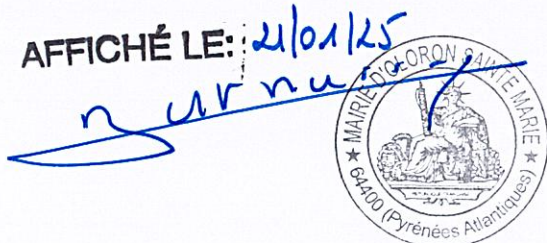 AFFICHÉ LE: 21/01/25
MAIRIE D'OLORON SAINTE MARIE
★ 64400 (Pyrénées Atlantiques) ★